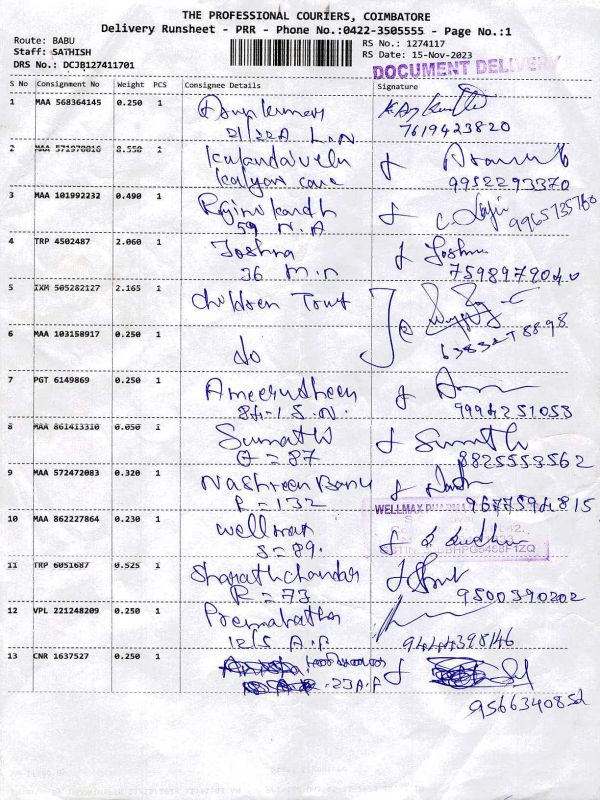 THE PROFESSIONAL COURIERS, COIMBATORE
Delivery Runsheet - PRR - Phone No.:0422-3505555 - Page No.:1
Route: BABU
Staff: SATHISH
DRS No.: DCJB127411701
RS No.: 1274117
RS Date: 15-Nov-2023
DOCUMENT DELIVERY
S No Consignment No Weight PCS Consignee Details Signature
1 MAA 568364145 0.250 1
21/22A L.N
7619423820
2 MAA 571970016 8.550 1
Kalyan care
9952293370
3 MAA 101992232 0.490 1 Rajinikandh
59 N.A
4 TRP 4502487 2.060 1 Joshna
36 M.N
5 IXM 505282127 2.165 1 Children Trust
6 MAA 103158917 0.250 1 do
7 PGT 6149869 0.250 1 Ameerudheen
84-15.N.
9994251053
8 MAA 861413310 0.050 1 Sumathi
= 87
8825553562
9 MAA 572472083 0.320 1 Nashreen Banu
= 132
9677594815
WELLMAX
10 MAA 862227864 0.230 1 Wellmax
S = 89.
11 TRP 6051687 0.525 1 Sharathchandar
R = 73
9500390202
12 VPL 221248209 0.250 1
12/5 A.F
9444398146
13 CNR 1637527 0.250 1
23 A.F
9566340852